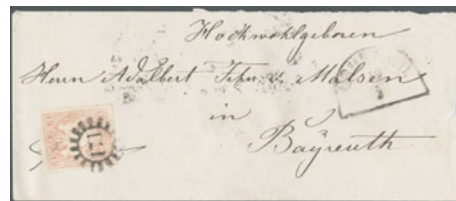 Hochwohlgeboren
Herrn Adalbert Frhr. v. Malsen
in
Bayreuth